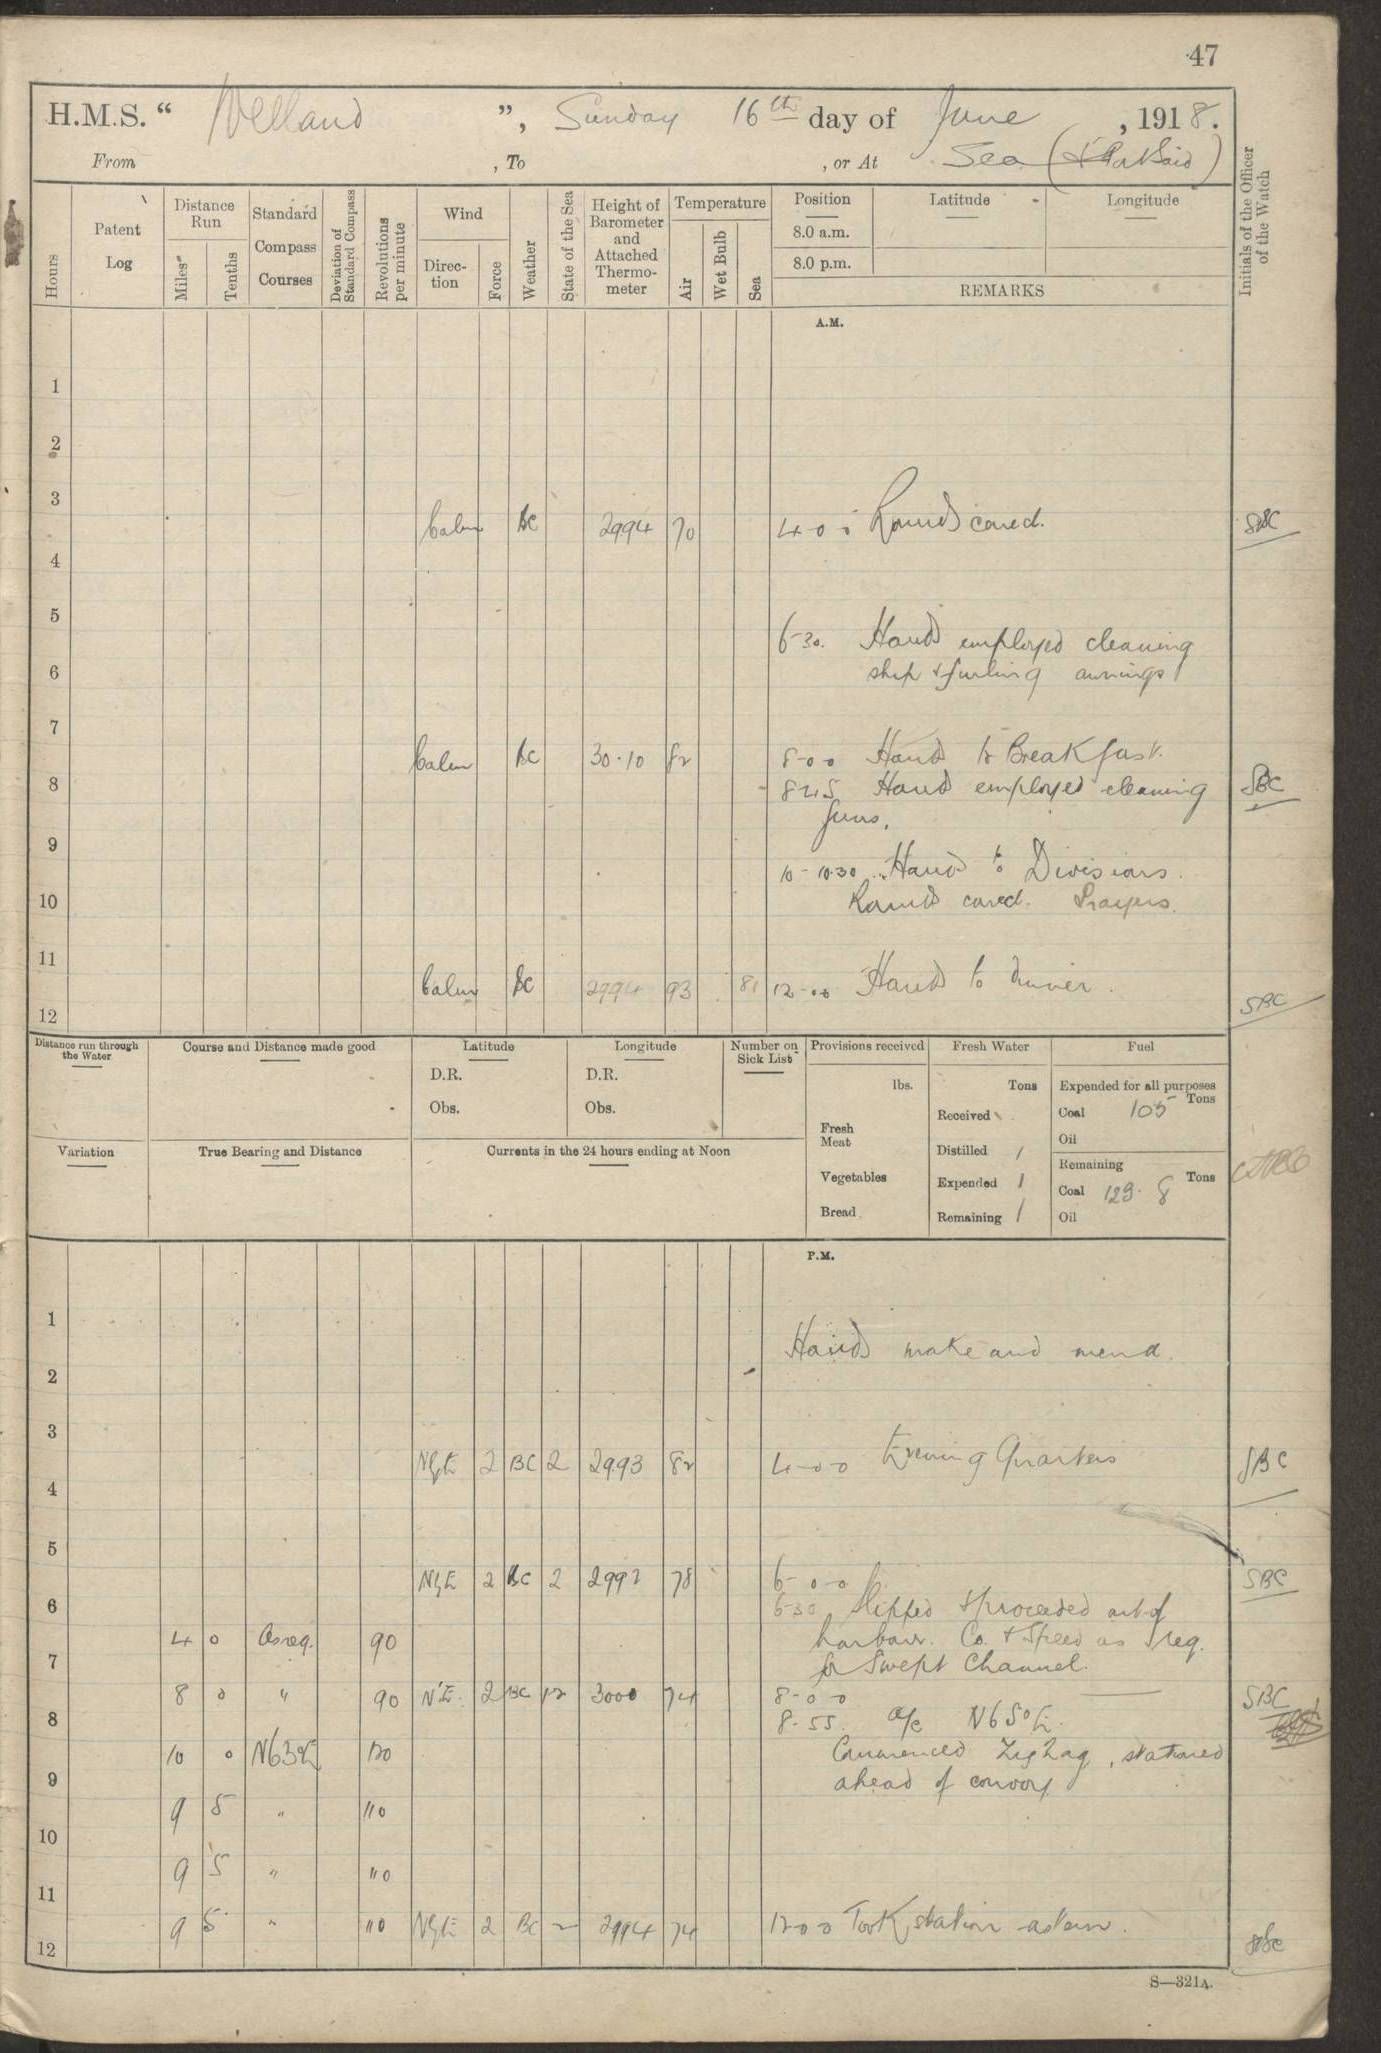 47
H.M.S. “ Welland ”, Sunday 16th day of June, 1918.
From , To , or At Sea (& Port Said)
Hours
Patent Log
Distance Run
Miles
Tenths
Standard Compass Courses
Deviation of Standard Compass
Revolutions per minute
Wind
Direction
Force
Weather
State of the Sea
Height of Barometer and Attached Thermometer
Temperature
Air
Wet Bulb
Sea
Position
8.0 a.m.
8.0 p.m.
Latitude
Longitude
REMARKS
Initials of the Officer of the Watch
A.M.
1
2
3
Calm BC 2994 70 4-0-0 Rounds correct. SBC
4
5
6-30. Hands employed cleaning
ship & furling awnings
6
7
Calm BC 30.10 82 8-0-0 Hands to Breakfast.
8 8.45 Hands employed cleaning SBC
guns.
9
10-10.30 Hands to Divisions.
10 Rounds correct. Prayers.
11
Calm BC 2994 93 81 12-00 Hands to dinner.
12 SBC
Distance run through the Water
Course and Distance made good
Latitude
D.R.
Obs.
Longitude
D.R.
Obs.
Number on Sick List
Provisions received
lbs.
Fresh Meat
Vegetables
Bread
Fresh Water
Tons
Received
Distilled /
Expended /
Remaining /
Fuel
Expended for all purposes
Tons
Coal 105
Oil
Remaining
Tons
Coal 129.8
Oil
Variation
True Bearing and Distance
Currents in the 24 hours ending at Noon
P.M.
1
Hands make and mend.
2
3
NbyE 2 BC 2 2993 82 4-0-0 Evening Quarters SBC
4
5
NbyE 2 BC 2 2992 78 6-0-0 SBC
6 6-30 Slipped & proceeded out of
4 0 As req. 90 harbour. Co. & Speed as req.
7 for Swept Channel.
8 0 " 90 N'E. 2 BC 12 3000 74 8-0-0 SBC
8 8-55. a/c N65°E.
10 0 N63°E 120 Commenced ZigZag, stationed
9 ahead of convoy
9 5 " 110
10
9 5 " 110
11
9 5 " 110 NbyE 2 BC 2 2994 74 12-0-0 Took station astern.
12 SBC
S—321A.